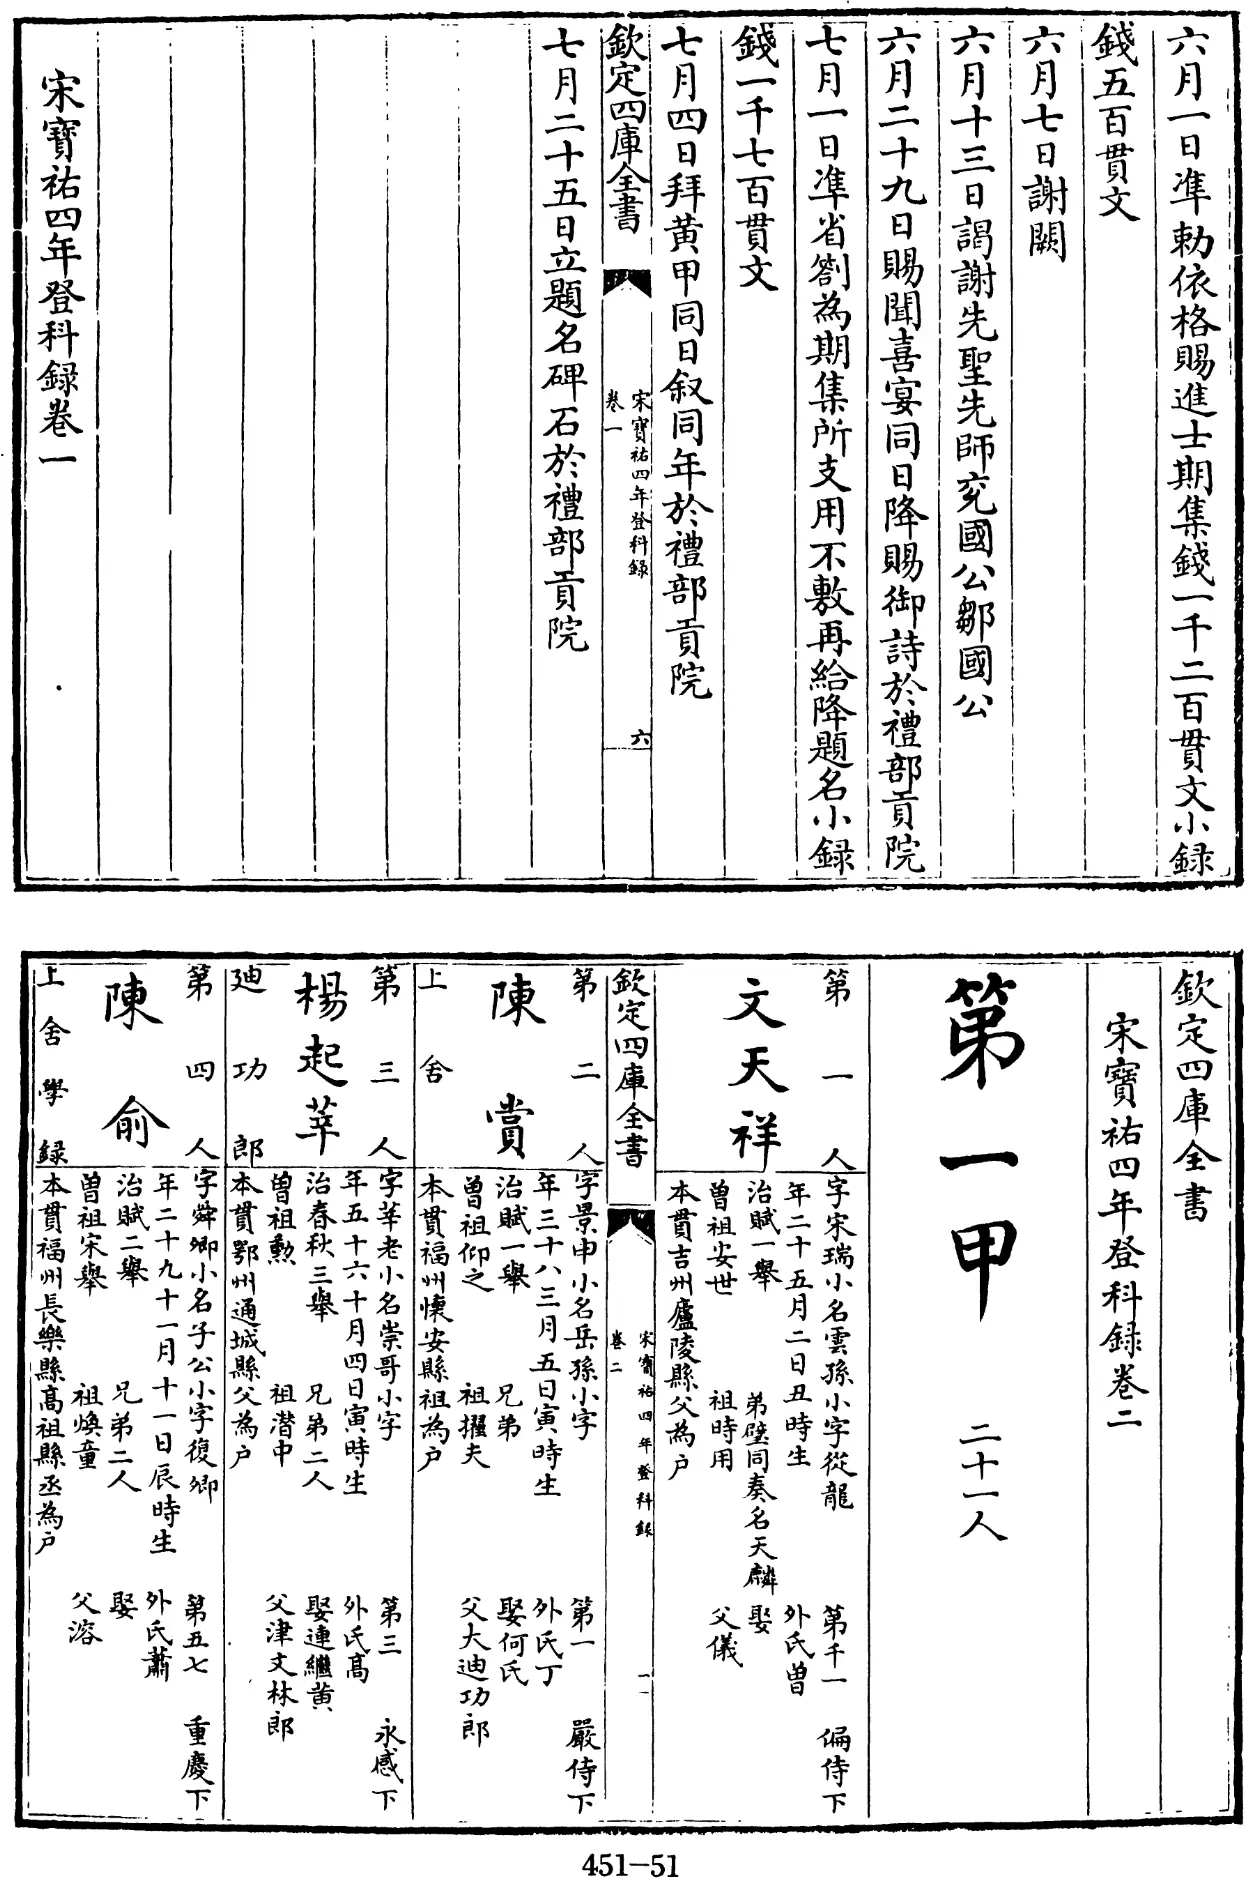 六月一日準勅依格賜進士期集錢一千二百貫文小録
錢五百貫文
六月七日謝闕
六月十三日謁謝先聖先師兖國公鄒國公
六月二十九日賜聞喜宴同日降賜御詩於禮部貢院
七月一日準省劄為期集所支用不敷再給降題名小録
錢一千七百貫文
七月四日拜黄甲同日叙同年於禮部貢院
欽定四庫全書
宋寶祐四年登科録
卷一
六
七月二十五日立題名碑石於禮部貢院
宋寶祐四年登科録卷一
欽定四庫全書
宋寶祐四年登科録卷二
第一甲 二十一人
第一人
文天祥
字宋瑞小名雲孫小字從龍 第千一 偏侍下
年二十五月二日丑時生 外氏曾
治賦一舉 弟璧同奏名天麟 娶
曽祖安世 祖時用 父儀
本貫吉州廬陵縣父為户
欽定四庫全書
宋寳祐四年登科録
卷二
一
第二人
陳賞
上舍
字景申小名岳孫小字 第一 嚴侍下
年三十八三月五日寅時生 外氏丁
治賦一舉 兄弟 娶何氏
曽祖仰之 祖擢夫 父大迪功郎
本貫福州懐安縣祖為户
第三人
楊起莘
廸功郎
字莘老小名崇哥小字 第三 永感下
年五十六十月四日寅時生 外氏髙
治春秋三舉 兄弟二人 娶連繼黄
曽祖勲 祖潜中 父津文林郎
本貫鄂州通城縣父為户
第四人
陳俞
上舍學録
字舜卿小名子公小字復卿 第五七 重慶下
年二十九十一月十一日辰時生 外氏蕭
治賦二舉 兄弟二人 娶
曽祖宋舉 祖煥童 父溶
本貫福州長樂縣髙祖縣丞為户
451-51